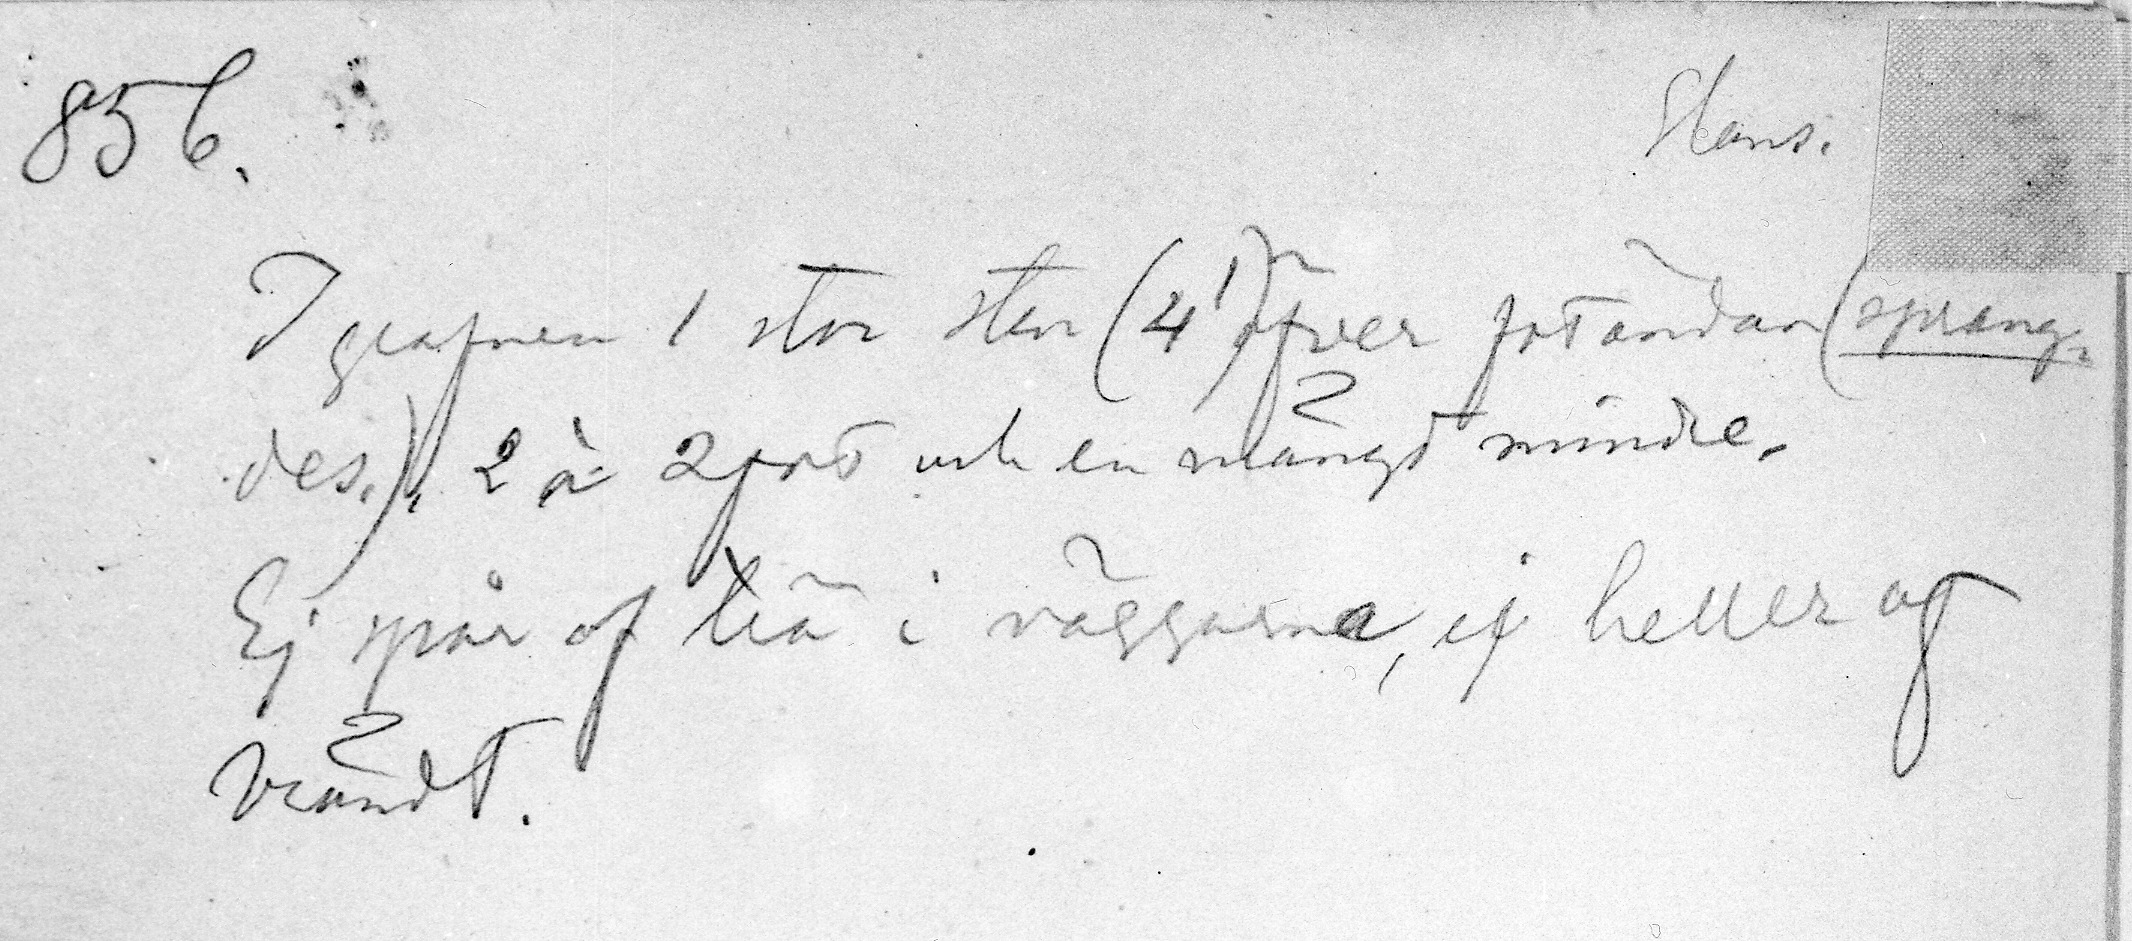 856.
Hans.
I grafven 1 stor sten (4') öfver fotändan (spräng-
des.), 2 à 2 fot och en mängd mindre.
Ej spår af trä i väggarna, ej heller af
brändt.